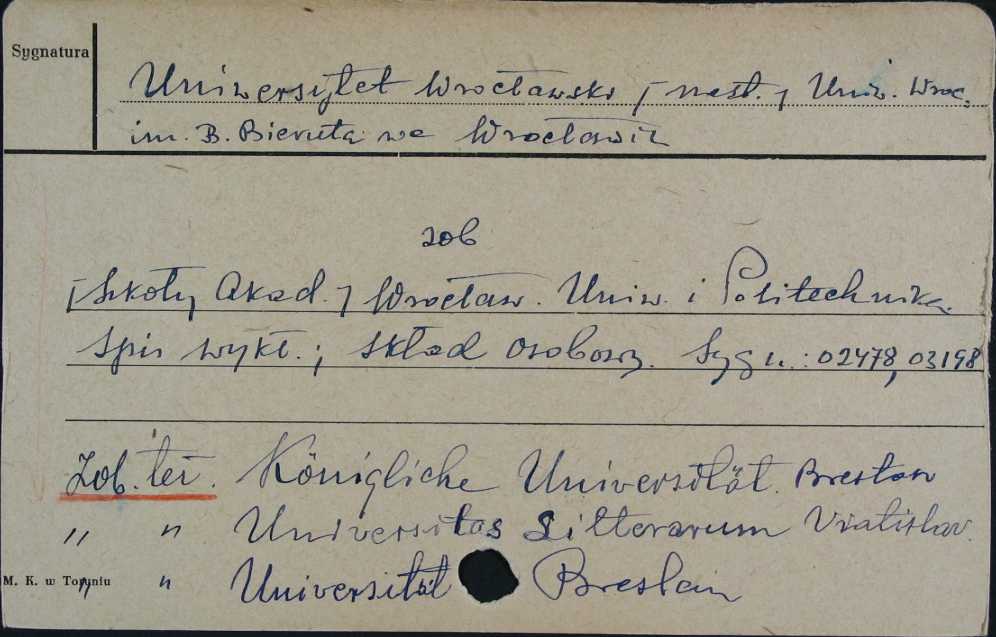 Sygnatura
Uniwersytet Wrocławski [nast.] Uniw. Wroc.
im. B. Bieruta we Wrocławiu
zob
[Szkoły Akad.] Wrocław. Uniw. i Politechnika.
Spis wykł.; skład osobowy. Sygn.: 02478, 03198
Zob. też. Königliche Universität. Breslau
" " Universitas Litterarum Vratislav.
M. K. w Toruniu " " Universität Breslau